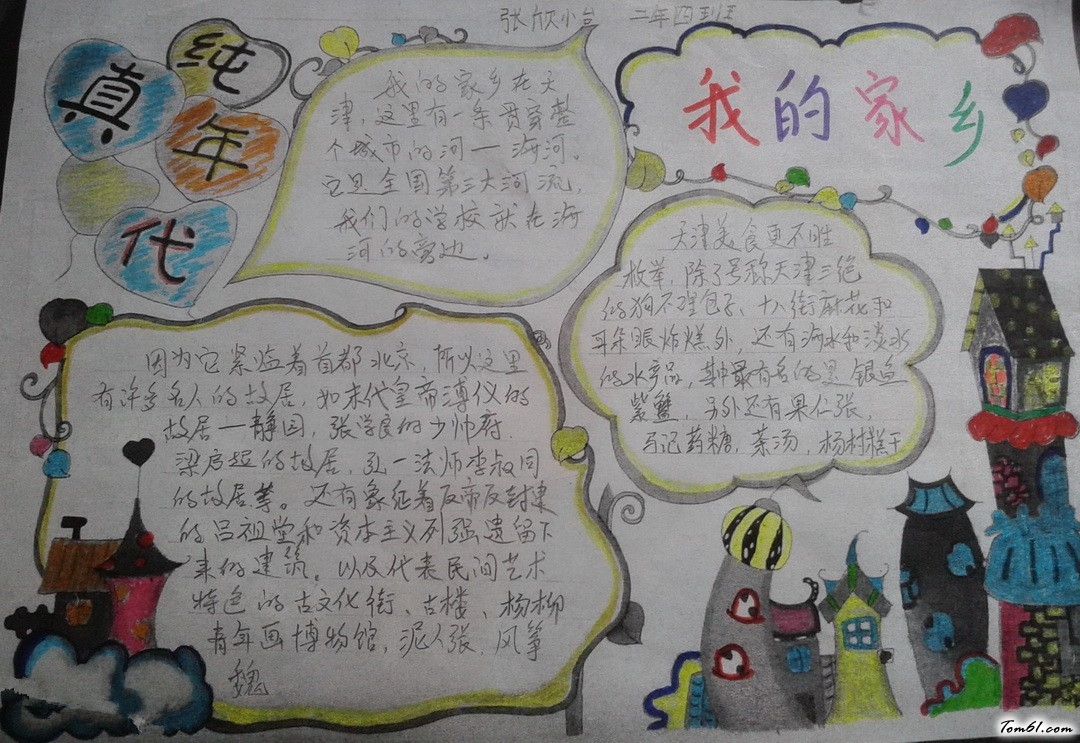 张欣小台 二年四班
纯真年代
我的家乡
我的家乡在天
津,这里有一条贯穿整
个城市的河一海河。
它是全国第三大河流,
我们的学校就在海
河的旁边。
天津美食更不胜
枚举,除了号称天津三绝
的狗不理包子、十八街麻花和
耳朵眼炸糕外,还有海水和淡水
的水产品,其中最有名的是银鱼
紫蟹,另外还有果仁张,
马记药糖,茶汤,杨村糕干
因为它紧临着首都北京,所以这里
有许多名人的故居,如末代皇帝溥仪的
故居一静园,张学良的少帅府.
梁启超的故居,弘一法师李叔同
的故居等。还有象征着反帝反封建
的吕祖堂和资本主义列强遗留下
来的建筑。以及代表民间艺术
特色的古文化街、古楼、杨柳
青年画博物馆,泥人张.风筝
魏
Tom61.com